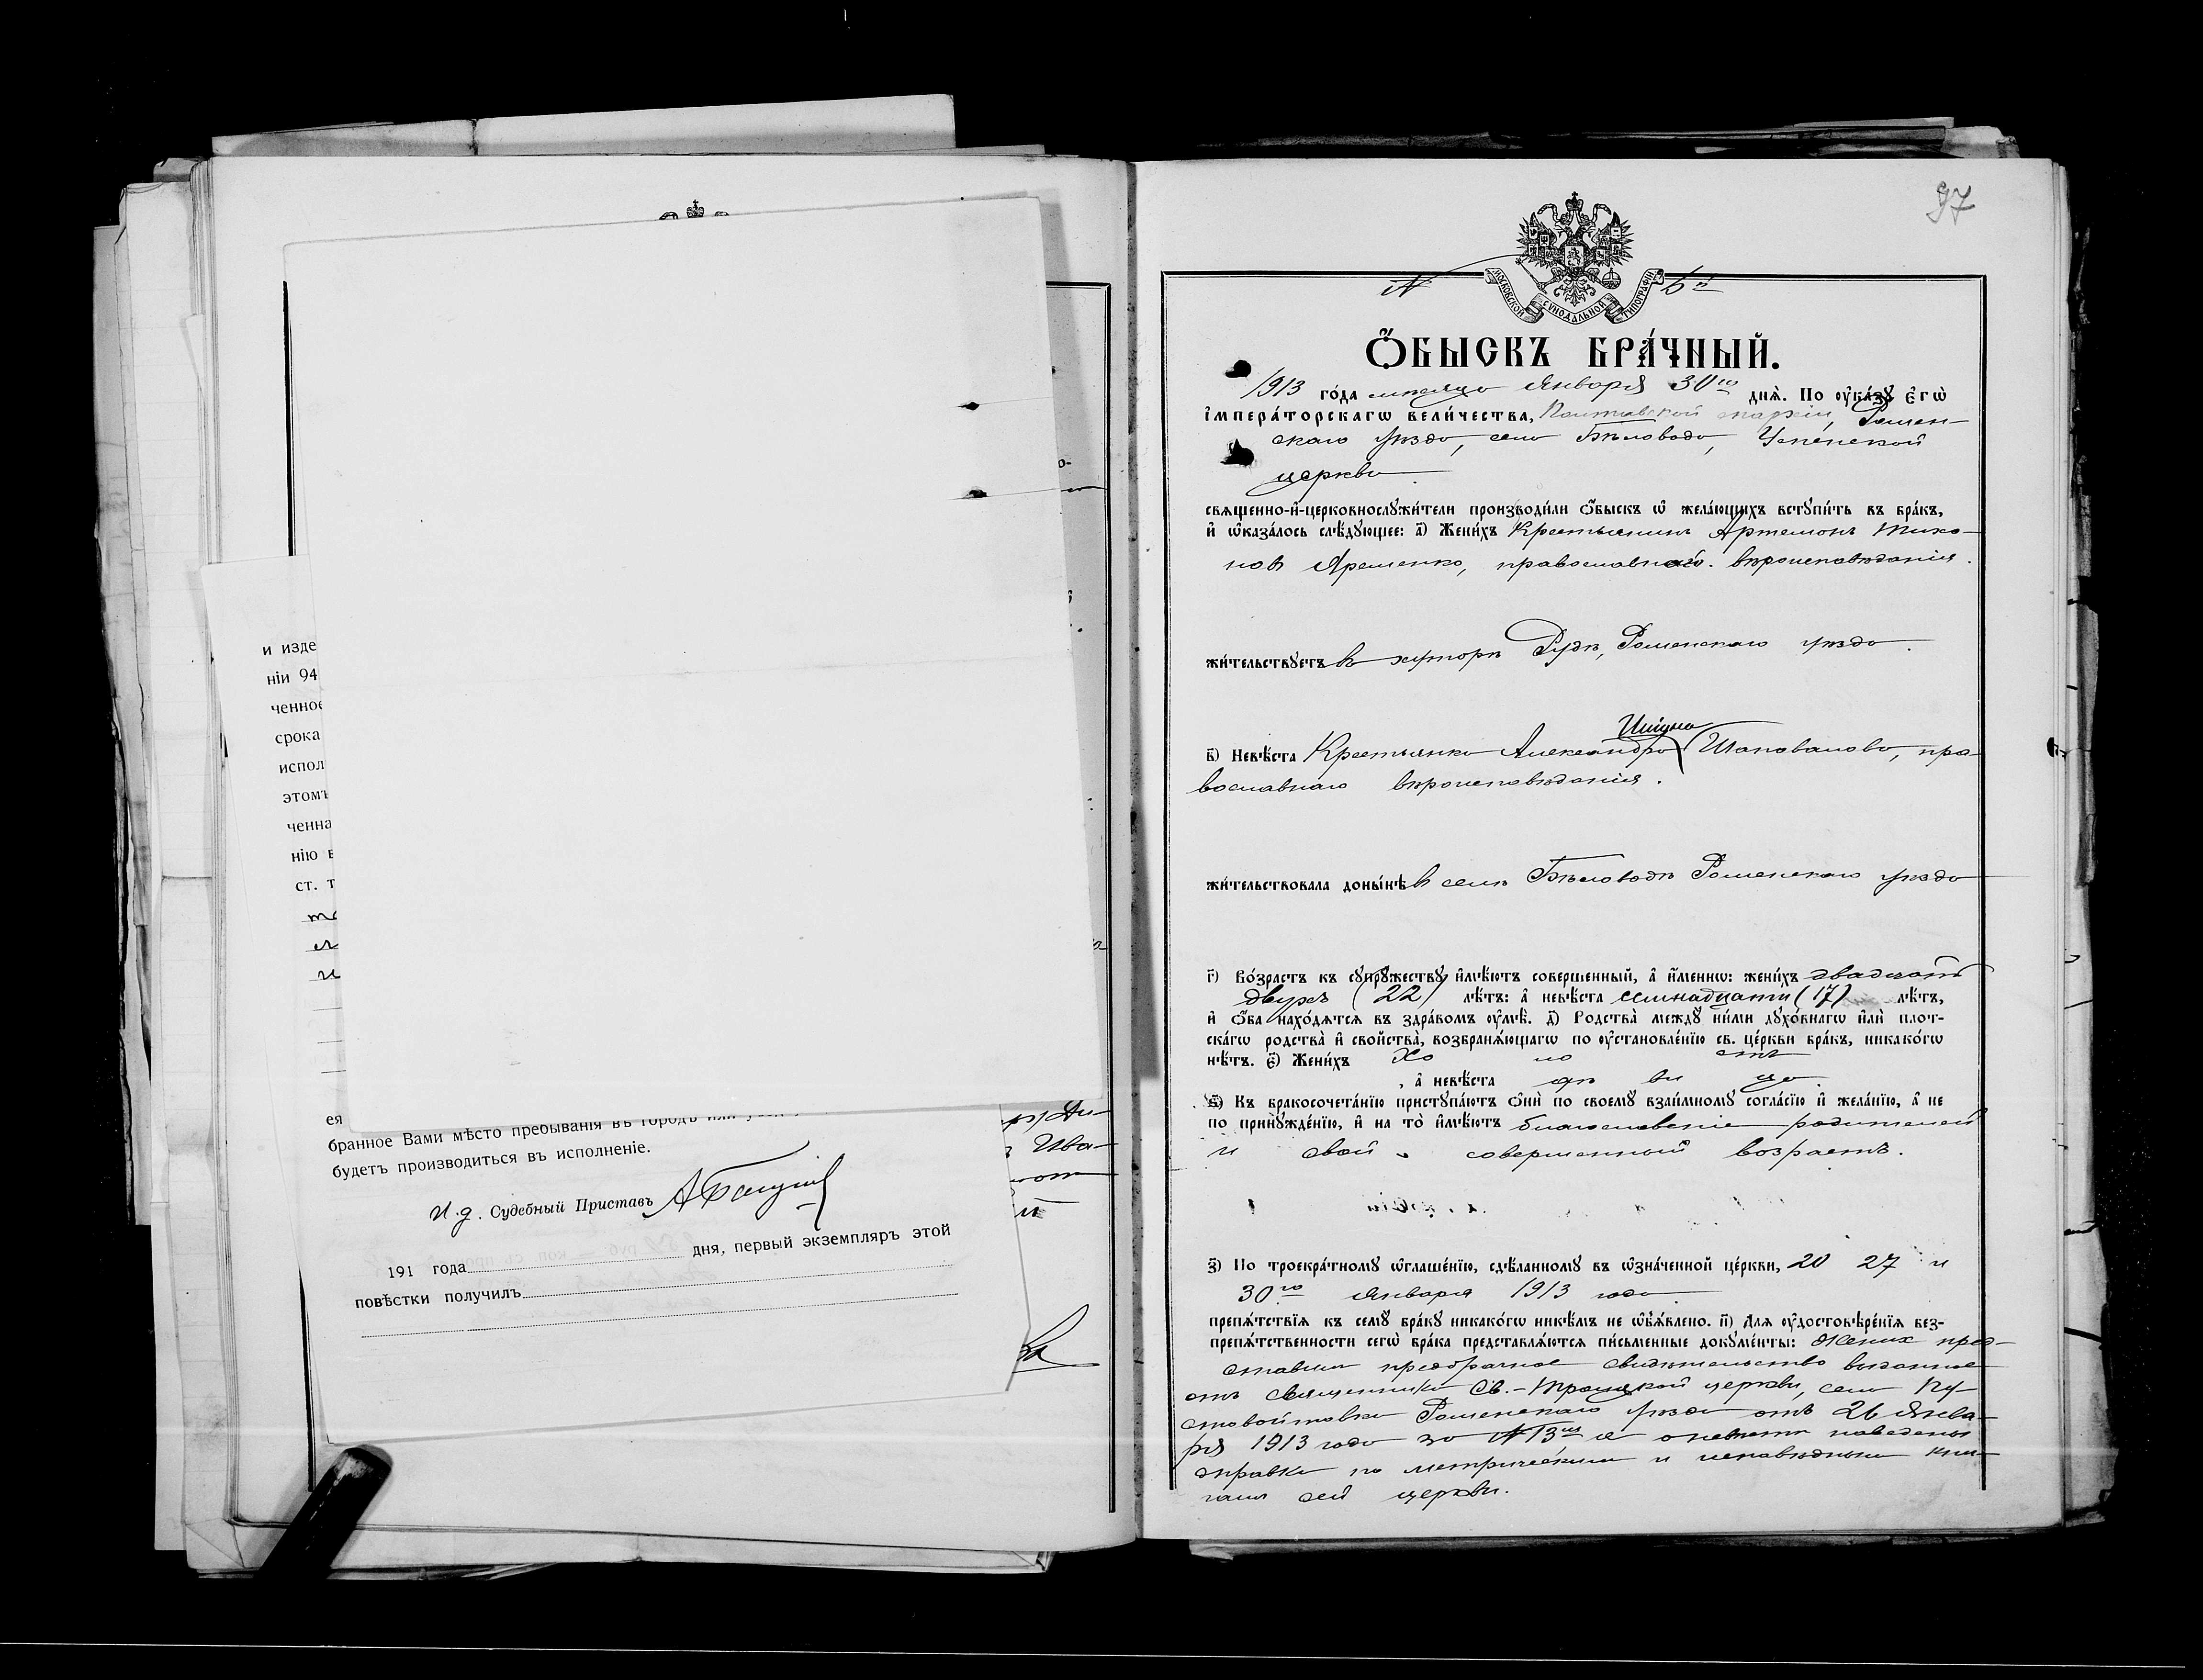 и изде
нiи 94
ченное
срока
испол
этомъ
ченна
нiю в
ст. т
ея
бранное Вами мѣсто пребыванiя въ городѣ или
будетъ производиться въ исполненiе.
И.д. Судебный Приставъ
191 года дня, первый экземпляръ этой
повѣстки получилъ
97
МОСКОВСКОЙ СѴНОДАЛЬНОЙ ТИПОГРАФІИ
N 6й
Ѻ҆БЫСКЪ БРА́ЧНЫЙ.
1913 го́да мѣсяца Января 30го днѧ̀. По ᲂу҆ка́зꙋ Є҆гѡ̀
і҆мпера́торскагѡ вели́чества, Полтавской епархіи, Ромен-
скаго уѣзда, села Бѣловода, Успенской
церкви
свѧщенно-и҆-церковнослꙋжи́тели производи́ли ѻ҆́быскъ ѡ҆ жела́ющихъ встꙋпи́ть въ бра́къ,
и҆ ѡ҆каза́лось слѣ́дꙋющее: а҃) Жени́хъ Крестьянинъ Артемонъ Тихо-
новъ Яременко, православнаго вѣроисповѣданія.
жи́тельствꙋетъ въ хуторѣ Рудѣ, Роменскаго уѣзда.
в҃) Невѣ́ста Крестьянка Александра Шаповалова, пра-
вославнаго вѣроисповѣданія.
жи́тельствовала доны́нѣ въ селѣ Бѣловодѣ Роменскаго уѣзда
г҃) Во́зрастъ къ сꙋпрꙋ́жествꙋ и҆мѣ́ютъ соверше́нный, а҆ и҆́меннѡ: жени́хъ двадцати
двухъ (22) лѣ́тъ: а҆ невѣ́ста семнадцати (17) лѣ́тъ,
и҆ ѻ҆́ба нахо́дѧтсѧ въ здра́вомъ ᲂу҆мѣ̀. д҃) Родства̀ междꙋ̀ ни́ми дꙋхо́внагѡ и҆лѝ плот-
ска́гѡ родства̀ и҆ сво́йства̀, возбранѧ́ющагѡ по ᲂу҆становле́нїю св. це́ркви бра́къ, никако́гѡ
нѣ́тъ. є҃) Жени́хъ хо ло стъ
, а҆ невѣ́ста дѣ ви ца
ѕ҃) Къ бракосочета́нїю пристꙋпа́ютъ ѻ҆нѝ по своемꙋ̀ взаи́мномꙋ согла́сїю и҆ жела́нїю, а҆ не
по принꙋжде́нїю, и҆ на то̀ и҆мѣ́ютъ благословеніе родителей
и свой совершенный возрастъ.
з҃) По троекра́тномꙋ ѡ҆глаше́нїю, сдѣ́ланномꙋ въ ѡ҆зна́ченной це́ркви, 20 27 и
30го января 1913 года
препѧ́тствїѧ къ семꙋ̀ бра́кꙋ никако́гѡ никѣ́мъ не ѡ҆б̾ѧ́влено. и҃) Длѧ ᲂу҆достовѣре́нїѧ без-
препѧ́тственности сегѡ̀ бра́ка представлѧ́ютсѧ пи́сьменные докꙋме́нты: Жених пред-
ставилъ предбрачное свидѣтельство выданное
отъ священника Св.-Троицкой церкви, села Пу-
стовойтовки Роменскаго уѣзда отъ 26 Янва-
ря 1913 года за N 13 и о невѣстѣ наведены
справки по метрическимъ и исповѣднымъ кни-
гамъ сей церкви.